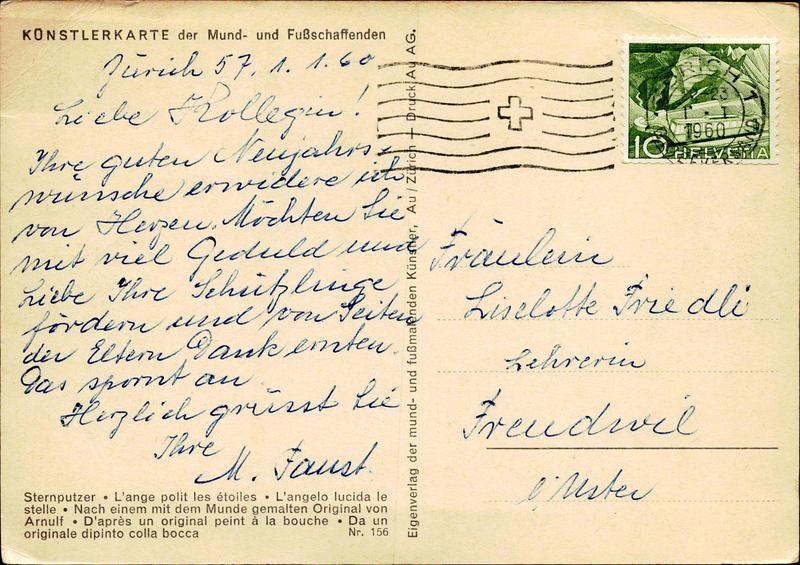 KÜNSTLERKARTE der Mund- und Fußschaffenden
Zürich 57, 1. 1. 60
Liebe Kollegin!
Ihre guten Neujahrs=
wünsche erwidere ich
von Herzen. Möchten Sie
mit viel Geduld und
Liebe Ihre Schützlinge
fördern und von Seiten
der Eltern Dank ernten.
Das spornt an.
Herzlich grüsst Sie
Ihre
M. Faust.
Sternputzer • L'ange polit les étoiles • L'angelo lucida le
stelle • Nach einem mit dem Munde gemalten Original von
Arnulf • D'après un original peint à la bouche • Da un
originale dipinto colla bocca Nr. 156
Eigenverlag der mund- und fußmalenden Künstler, Au/Zürich — Druck Au AG.
1960
10 HELVETIA
Fräulein
Liselotte Friedli
Lehrerin
Freudwil
b/Uster